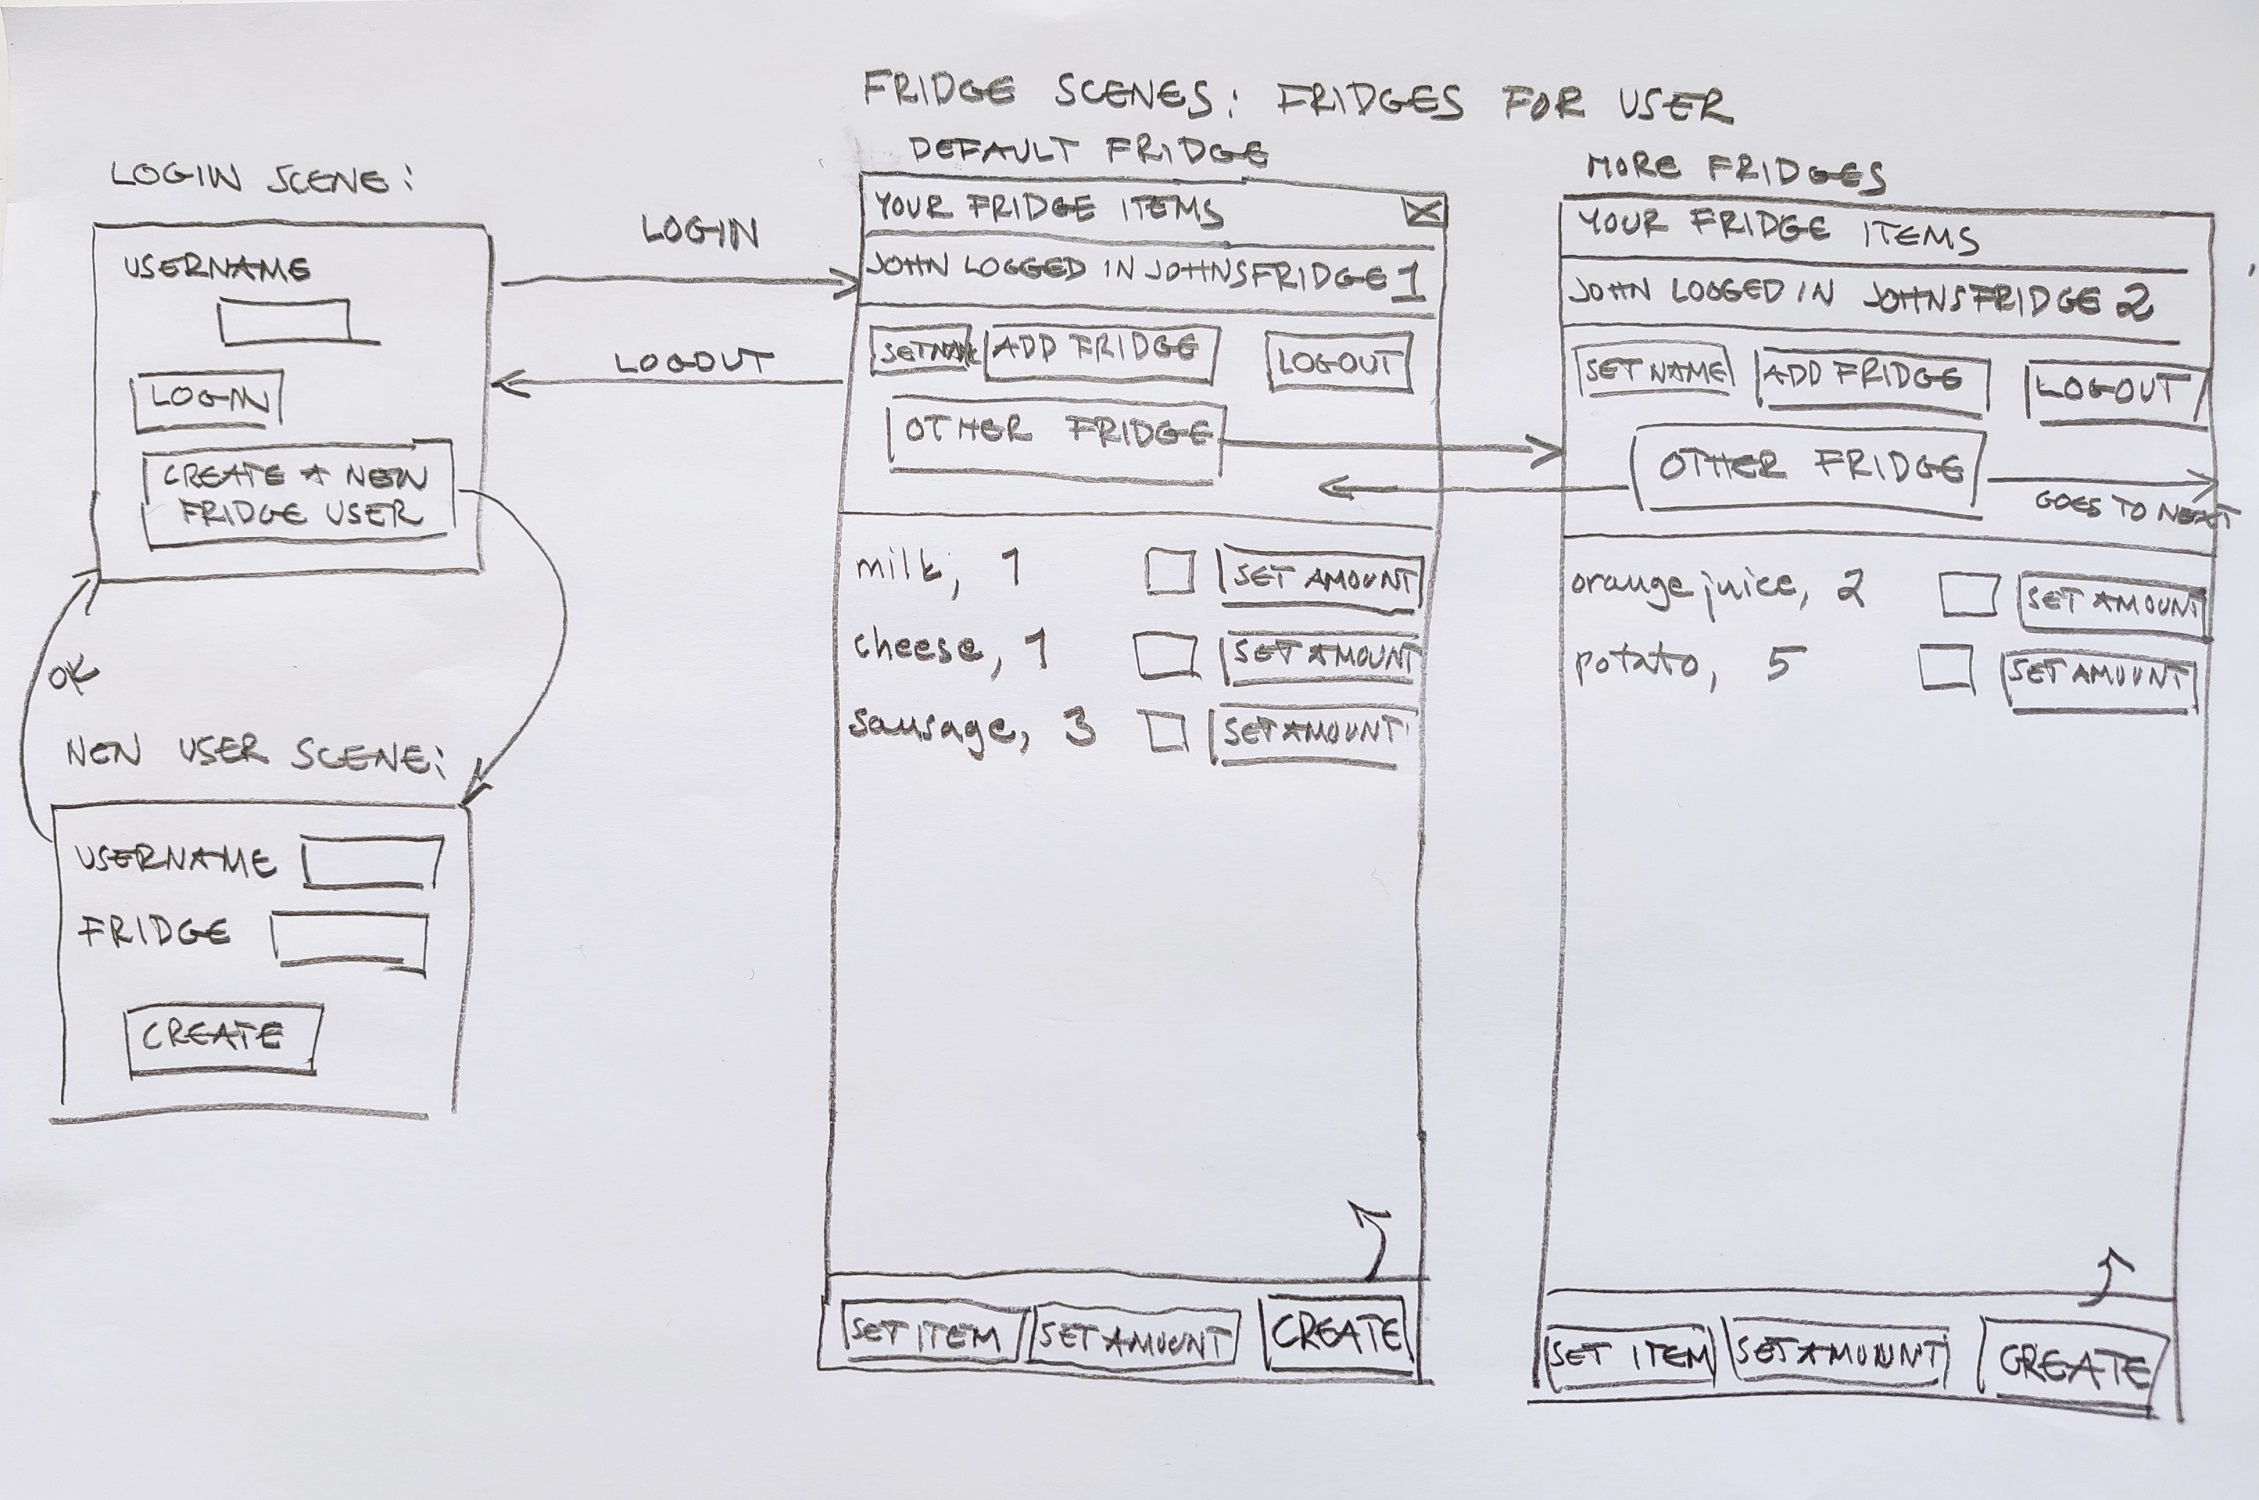 FRIDGE SCENES: FRIDGES FOR USER
LOGIN SCENE:
USERNAME
LOGIN
CREATE A NEW
FRIDGE USER
LOGIN
LOGOUT
OK
NEW USER SCENE:
USERNAME
FRIDGE
CREATE
DEFAULT FRIDGE
YOUR FRIDGE ITEMS
JOHN LOGGED IN JOHNSFRIDGE 1
SETNAME ADD FRIDGE LOGOUT
OTHER FRIDGE
milk, 1 SET AMOUNT
cheese, 1 SET AMOUNT
sausage, 3 SET AMOUNT
SET ITEM SET AMOUNT CREATE
MORE FRIDGES
YOUR FRIDGE ITEMS
JOHN LOGGED IN JOHNSFRIDGE 2
SET NAME ADD FRIDGE LOGOUT
OTHER FRIDGE
GOES TO NEXT
orange juice, 2 SET AMOUNT
potato, 5 SET AMOUNT
SET ITEM SET AMOUNT CREATE